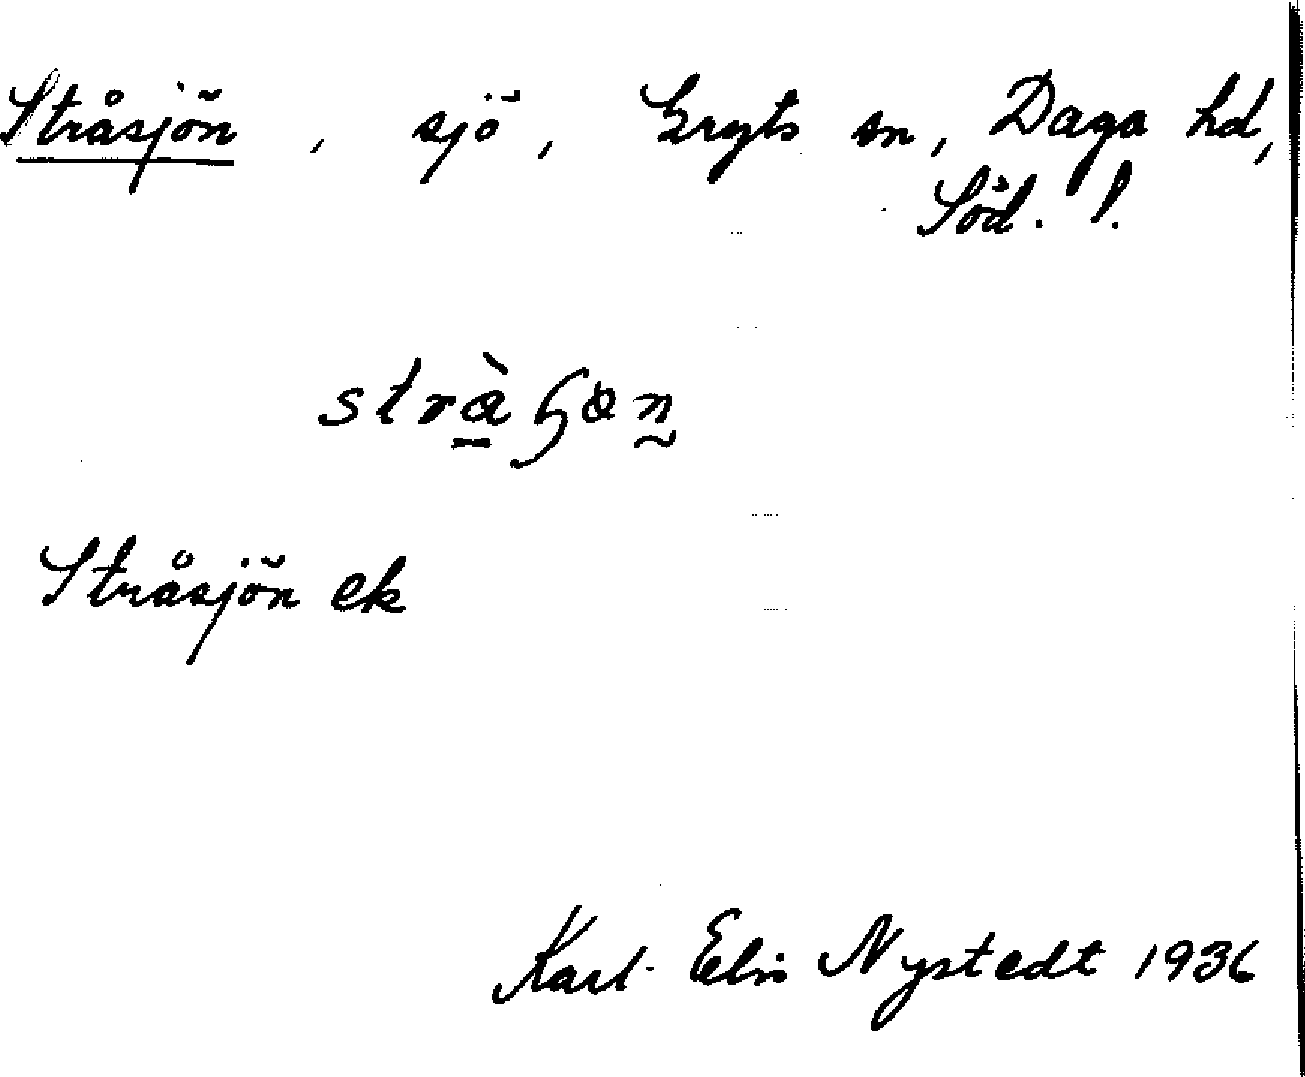 Stråsjön, sjö, Gryts sn, Daga hd,
Söd. !.
Stråsjön ek
Karl-Elis Nystedt 1936